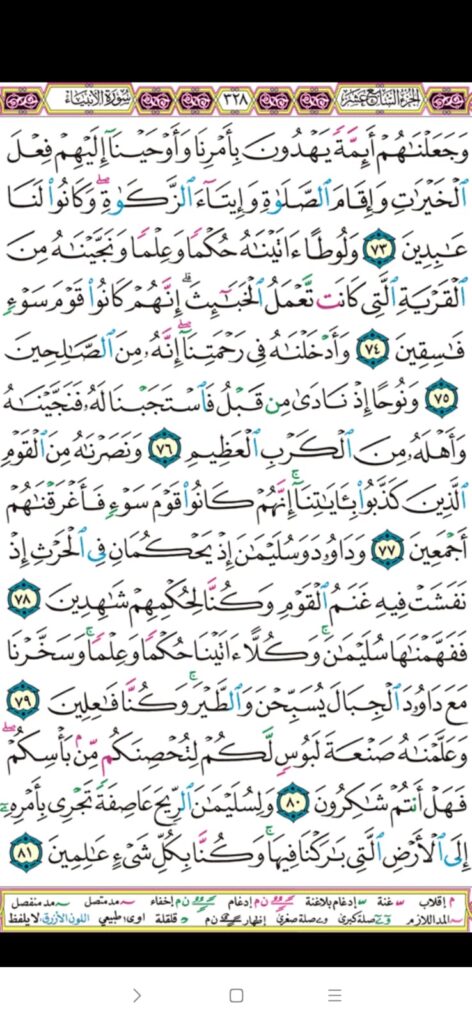 الجزء السابع عشر ٣٢٨ سورة الأنبياء
وَجَعَلْنَٰهُمْ أَئِمَّةً يَهْدُونَ بِأَمْرِنَا وَأَوْحَيْنَآ إِلَيْهِمْ فِعْلَ
ٱلْخَيْرَٰتِ وَإِقَامَ ٱلصَّلَوٰةِ وَإِيتَآءَ ٱلزَّكَوٰةِ ۖ وَكَانُوا۟ لَنَا
عَٰبِدِينَ ٧٣ وَلُوطًا ءَاتَيْنَٰهُ حُكْمًا وَعِلْمًا وَنَجَّيْنَٰهُ مِنَ
ٱلْقَرْيَةِ ٱلَّتِى كَانَت تَّعْمَلُ ٱلْخَبَٰٓئِثَ ۗ إِنَّهُمْ كَانُوا۟ قَوْمَ سَوْءٍ
فَٰسِقِينَ ٧٤ وَأَدْخَلْنَٰهُ فِى رَحْمَتِنَآ ۖ إِنَّهُۥ مِنَ ٱلصَّٰلِحِينَ
٧٥ وَنُوحًا إِذْ نَادَىٰ مِن قَبْلُ فَٱسْتَجَبْنَا لَهُۥ فَنَجَّيْنَٰهُ
وَأَهْلَهُۥ مِنَ ٱلْكَرْبِ ٱلْعَظِيمِ ٧٦ وَنَصَرْنَٰهُ مِنَ ٱلْقَوْمِ
ٱلَّذِينَ كَذَّبُوا۟ بِـَٔايَٰتِنَآ ۚ إِنَّهُمْ كَانُوا۟ قَوْمَ سَوْءٍ فَأَغْرَقْنَٰهُمْ
أَجْمَعِينَ ٧٧ وَدَاوُۥدَ وَسُلَيْمَٰنَ إِذْ يَحْكُمَانِ فِى ٱلْحَرْثِ إِذْ
نَفَشَتْ فِيهِ غَنَمُ ٱلْقَوْمِ وَكُنَّا لِحُكْمِهِمْ شَٰهِدِينَ ٧٨
فَفَهَّمْنَٰهَا سُلَيْمَٰنَ ۚ وَكُلًّا ءَاتَيْنَا حُكْمًا وَعِلْمًا ۚ وَسَخَّرْنَا
مَعَ دَاوُۥدَ ٱلْجِبَالَ يُسَبِّحْنَ وَٱلطَّيْرَ ۚ وَكُنَّا فَٰعِلِينَ ٧٩
وَعَلَّمْنَٰهُ صَنْعَةَ لَبُوسٍ لَّكُمْ لِتُحْصِنَكُم مِّنۢ بَأْسِكُمْ ۖ
فَهَلْ أَنتُمْ شَٰكِرُونَ ٨٠ وَلِسُلَيْمَٰنَ ٱلرِّيحَ عَاصِفَةً تَجْرِى بِأَمْرِهِۦٓ
إِلَى ٱلْأَرْضِ ٱلَّتِى بَٰرَكْنَا فِيهَا ۚ وَكُنَّا بِكُلِّ شَىْءٍ عَٰلِمِينَ ٨١
م إقلاب غنة إدغام بلاغنة ن م إدغام ن م إخفاء مد متصل مد منفصل
المد اللازم صلة كبرى صلة صغرى إظهار ن م قلقلة اوى طبيعي اللون الأزرق لا يلفظ